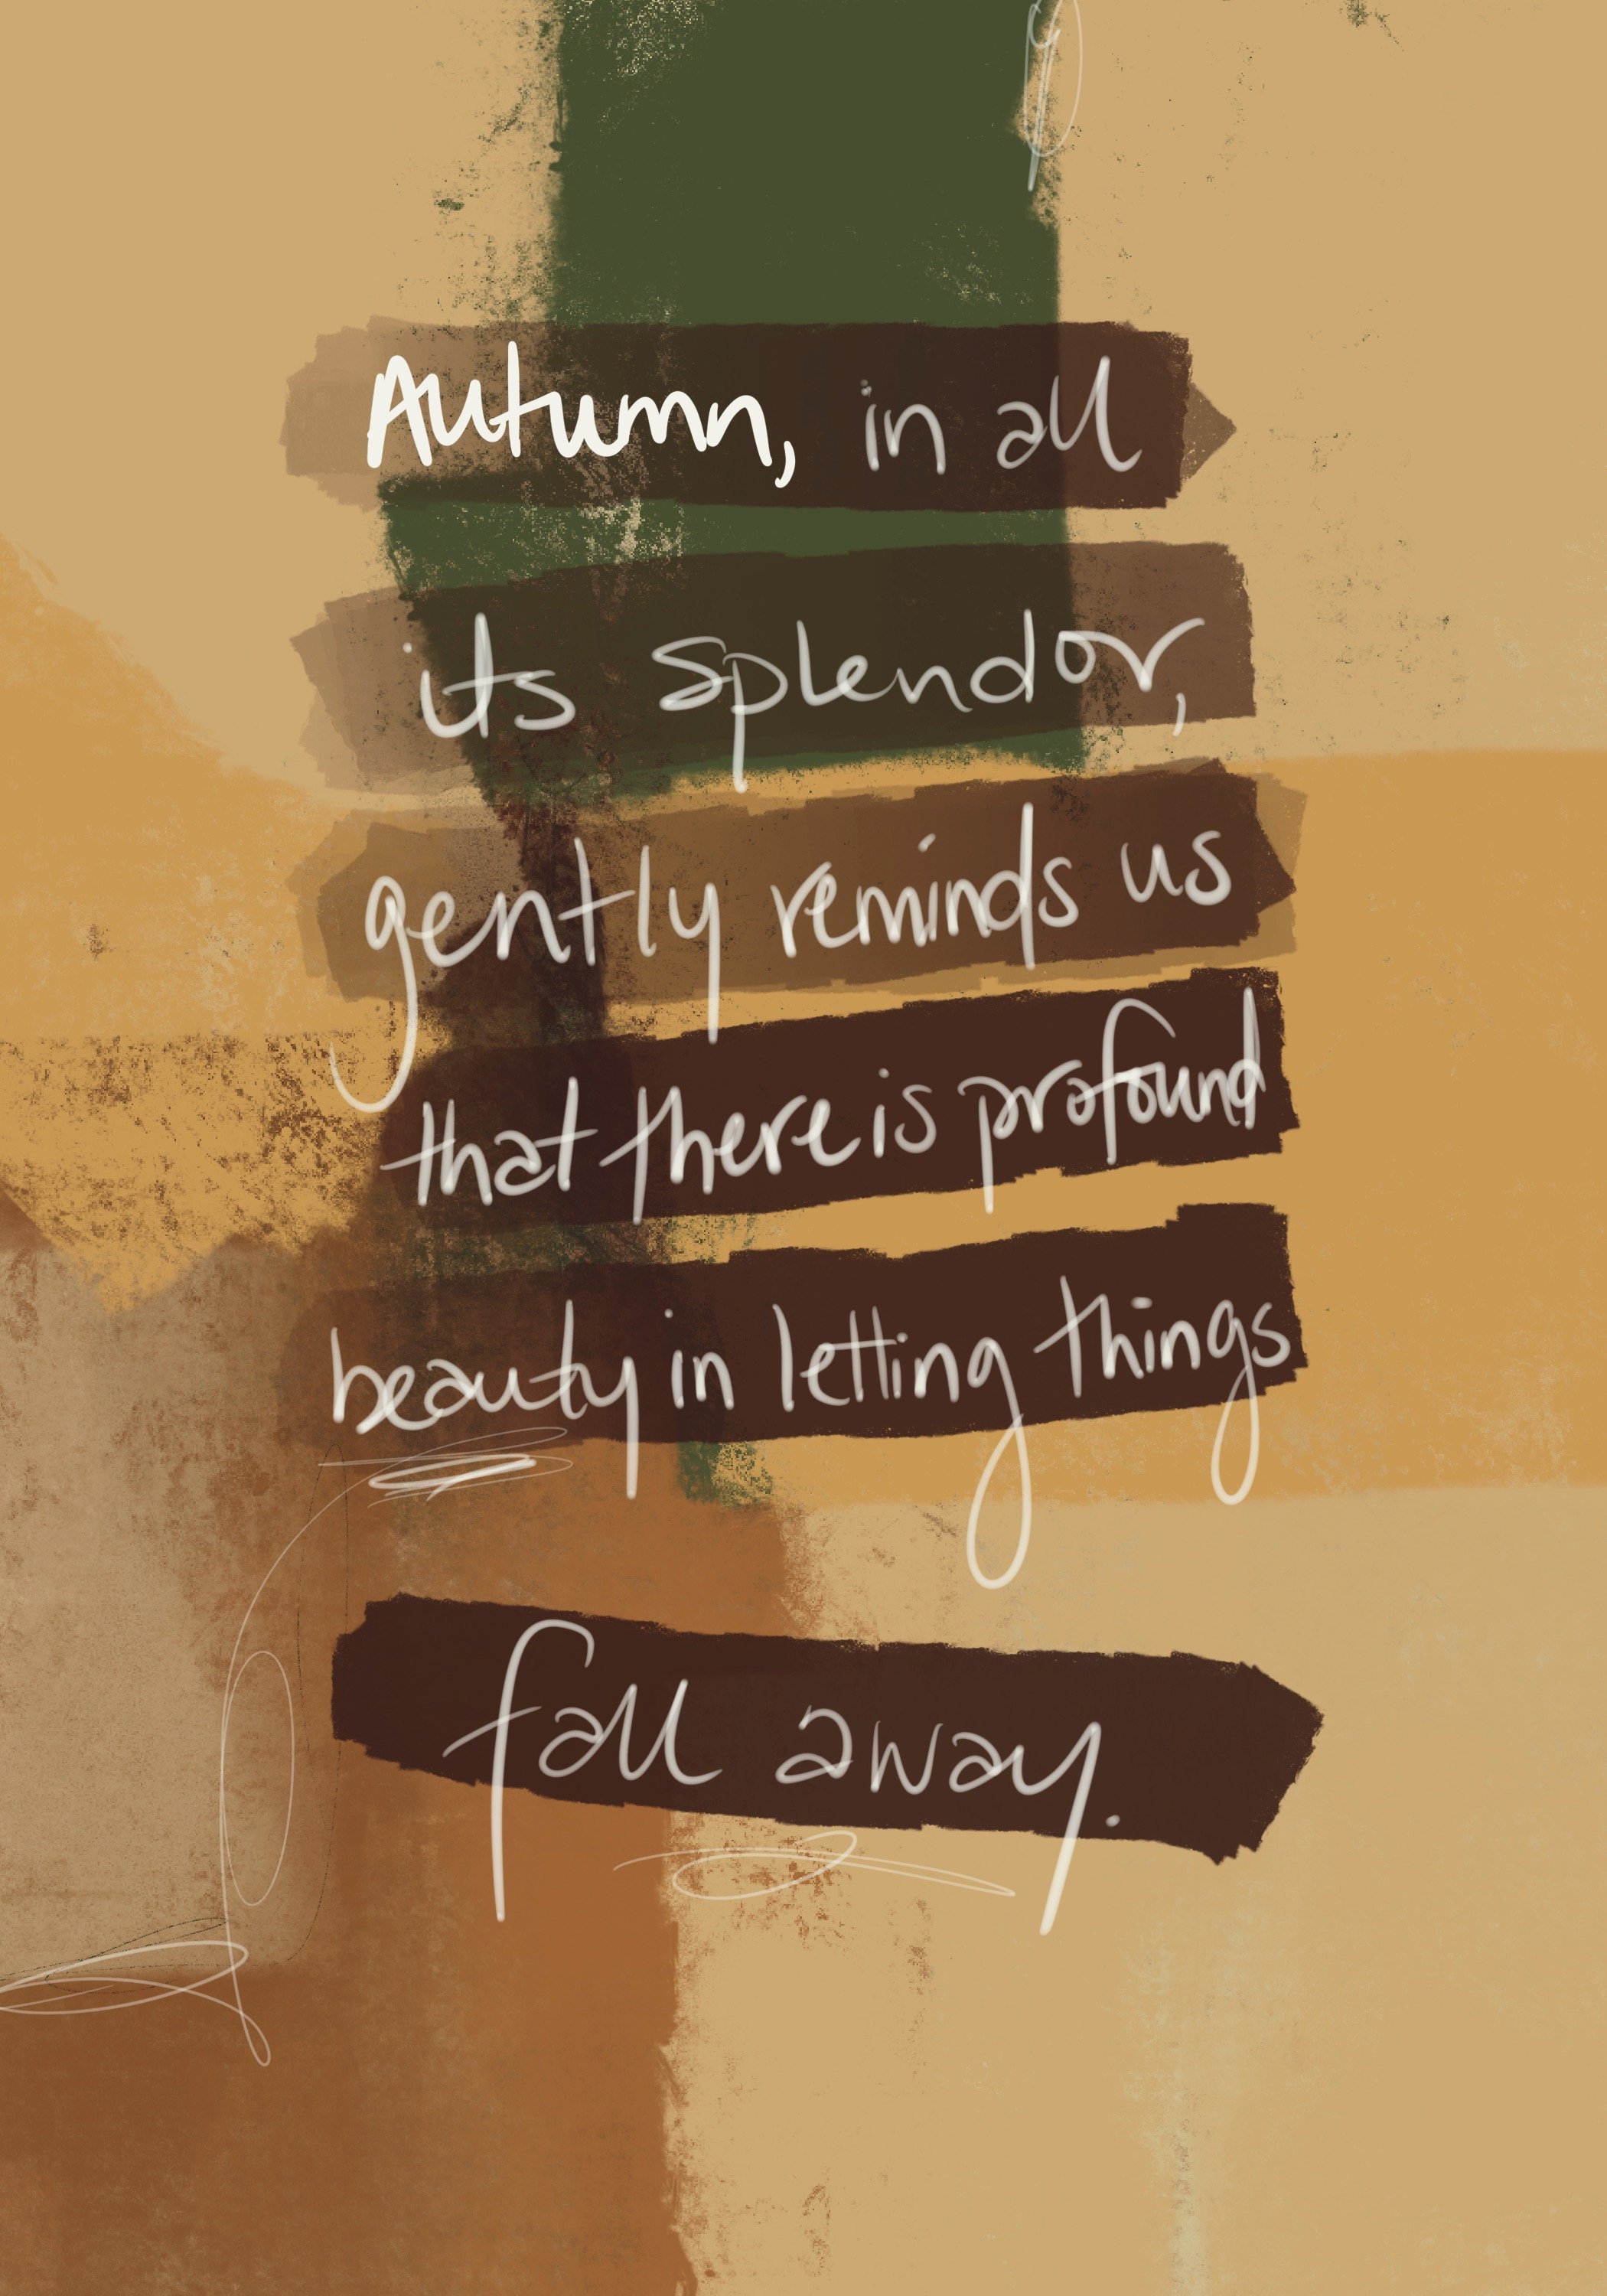 Autumn, in all
its splendor,
gently reminds us
that there is profound
beauty in letting things
fall away.